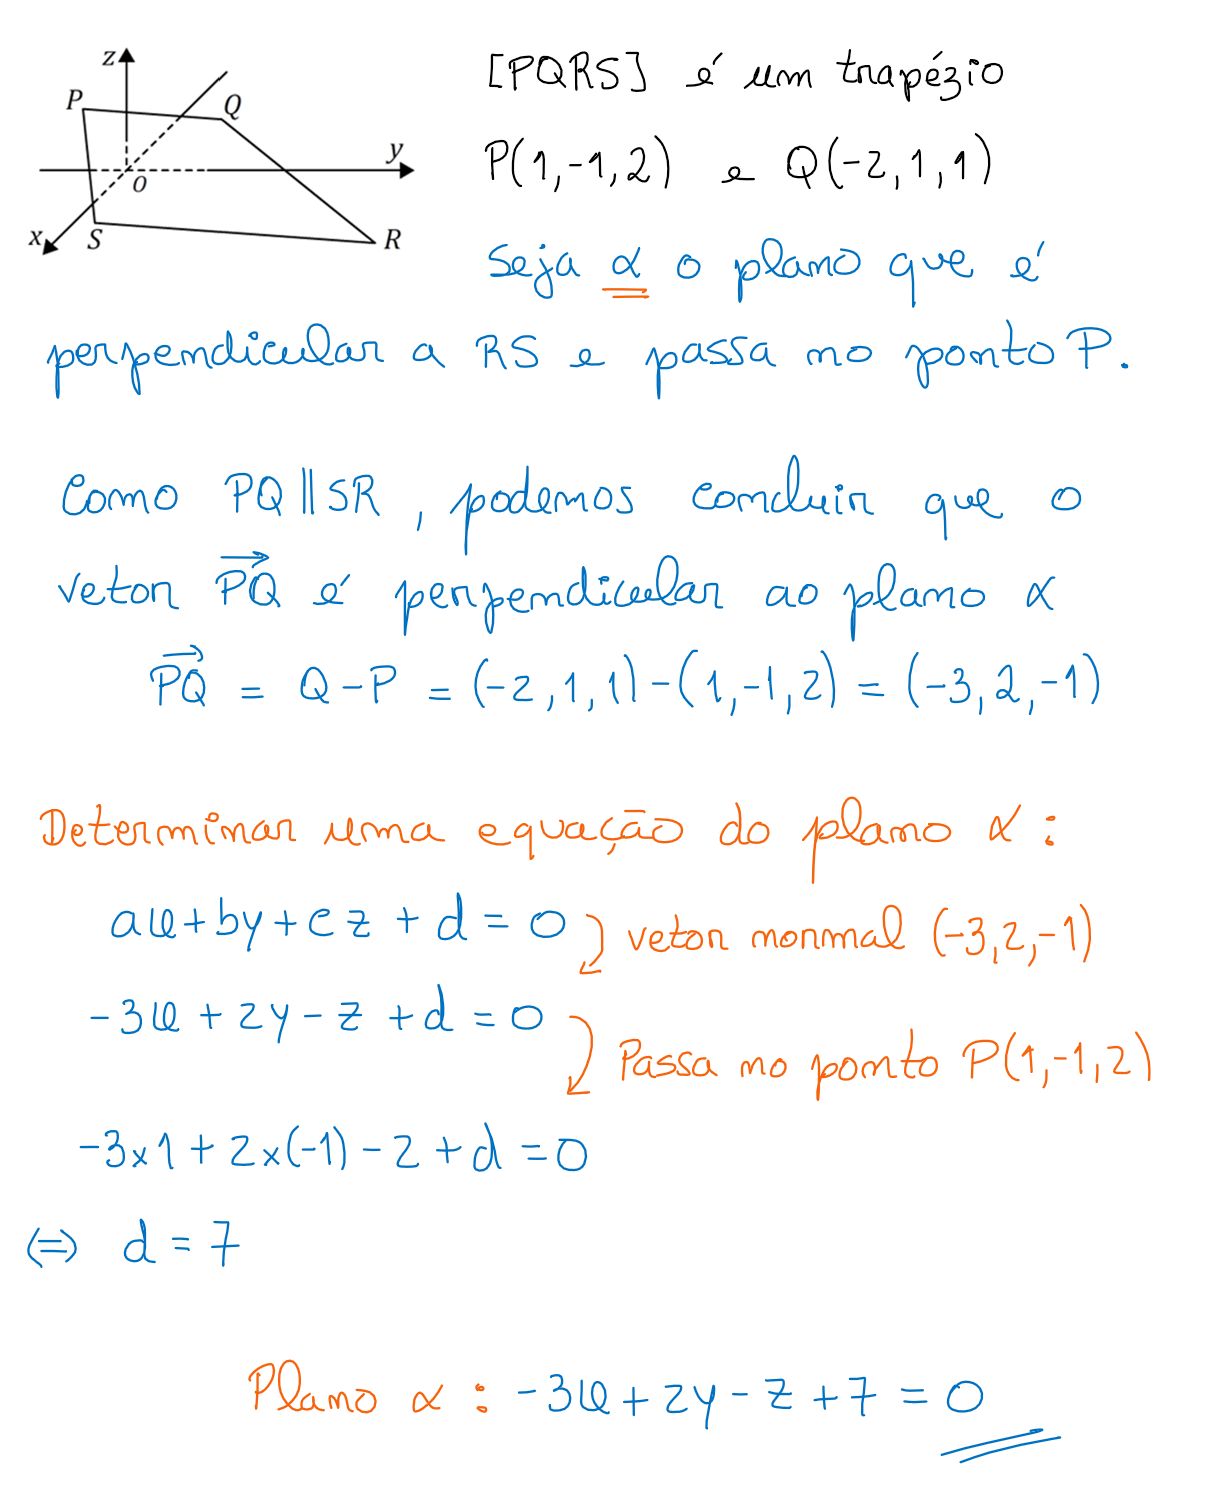 z
P
Q
y
O
x
S
R
[PQRS] é um trapézio
P(1,-1,2) e Q(-2,1,1)
Seja α o plano que é
perpendicular a RS e passa no ponto P.
Como PQ∥SR, podemos concluir que o
vetor $\overrightarrow{PQ}$ é perpendicular ao plano α
$\overrightarrow{PQ}$ = Q-P = (-2,1,1)-(1,-1,2) = (-3,2,-1)
Determinar uma equação do plano α :
ax+by+cz+d=0 vetor normal (-3,2,-1)
-3x+2y-z+d=0
Passa no ponto P(1,-1,2)
-3×1+2×(-1)-2+d=0
⇔ d=7
Plano α : -3x+2y-z+7=0